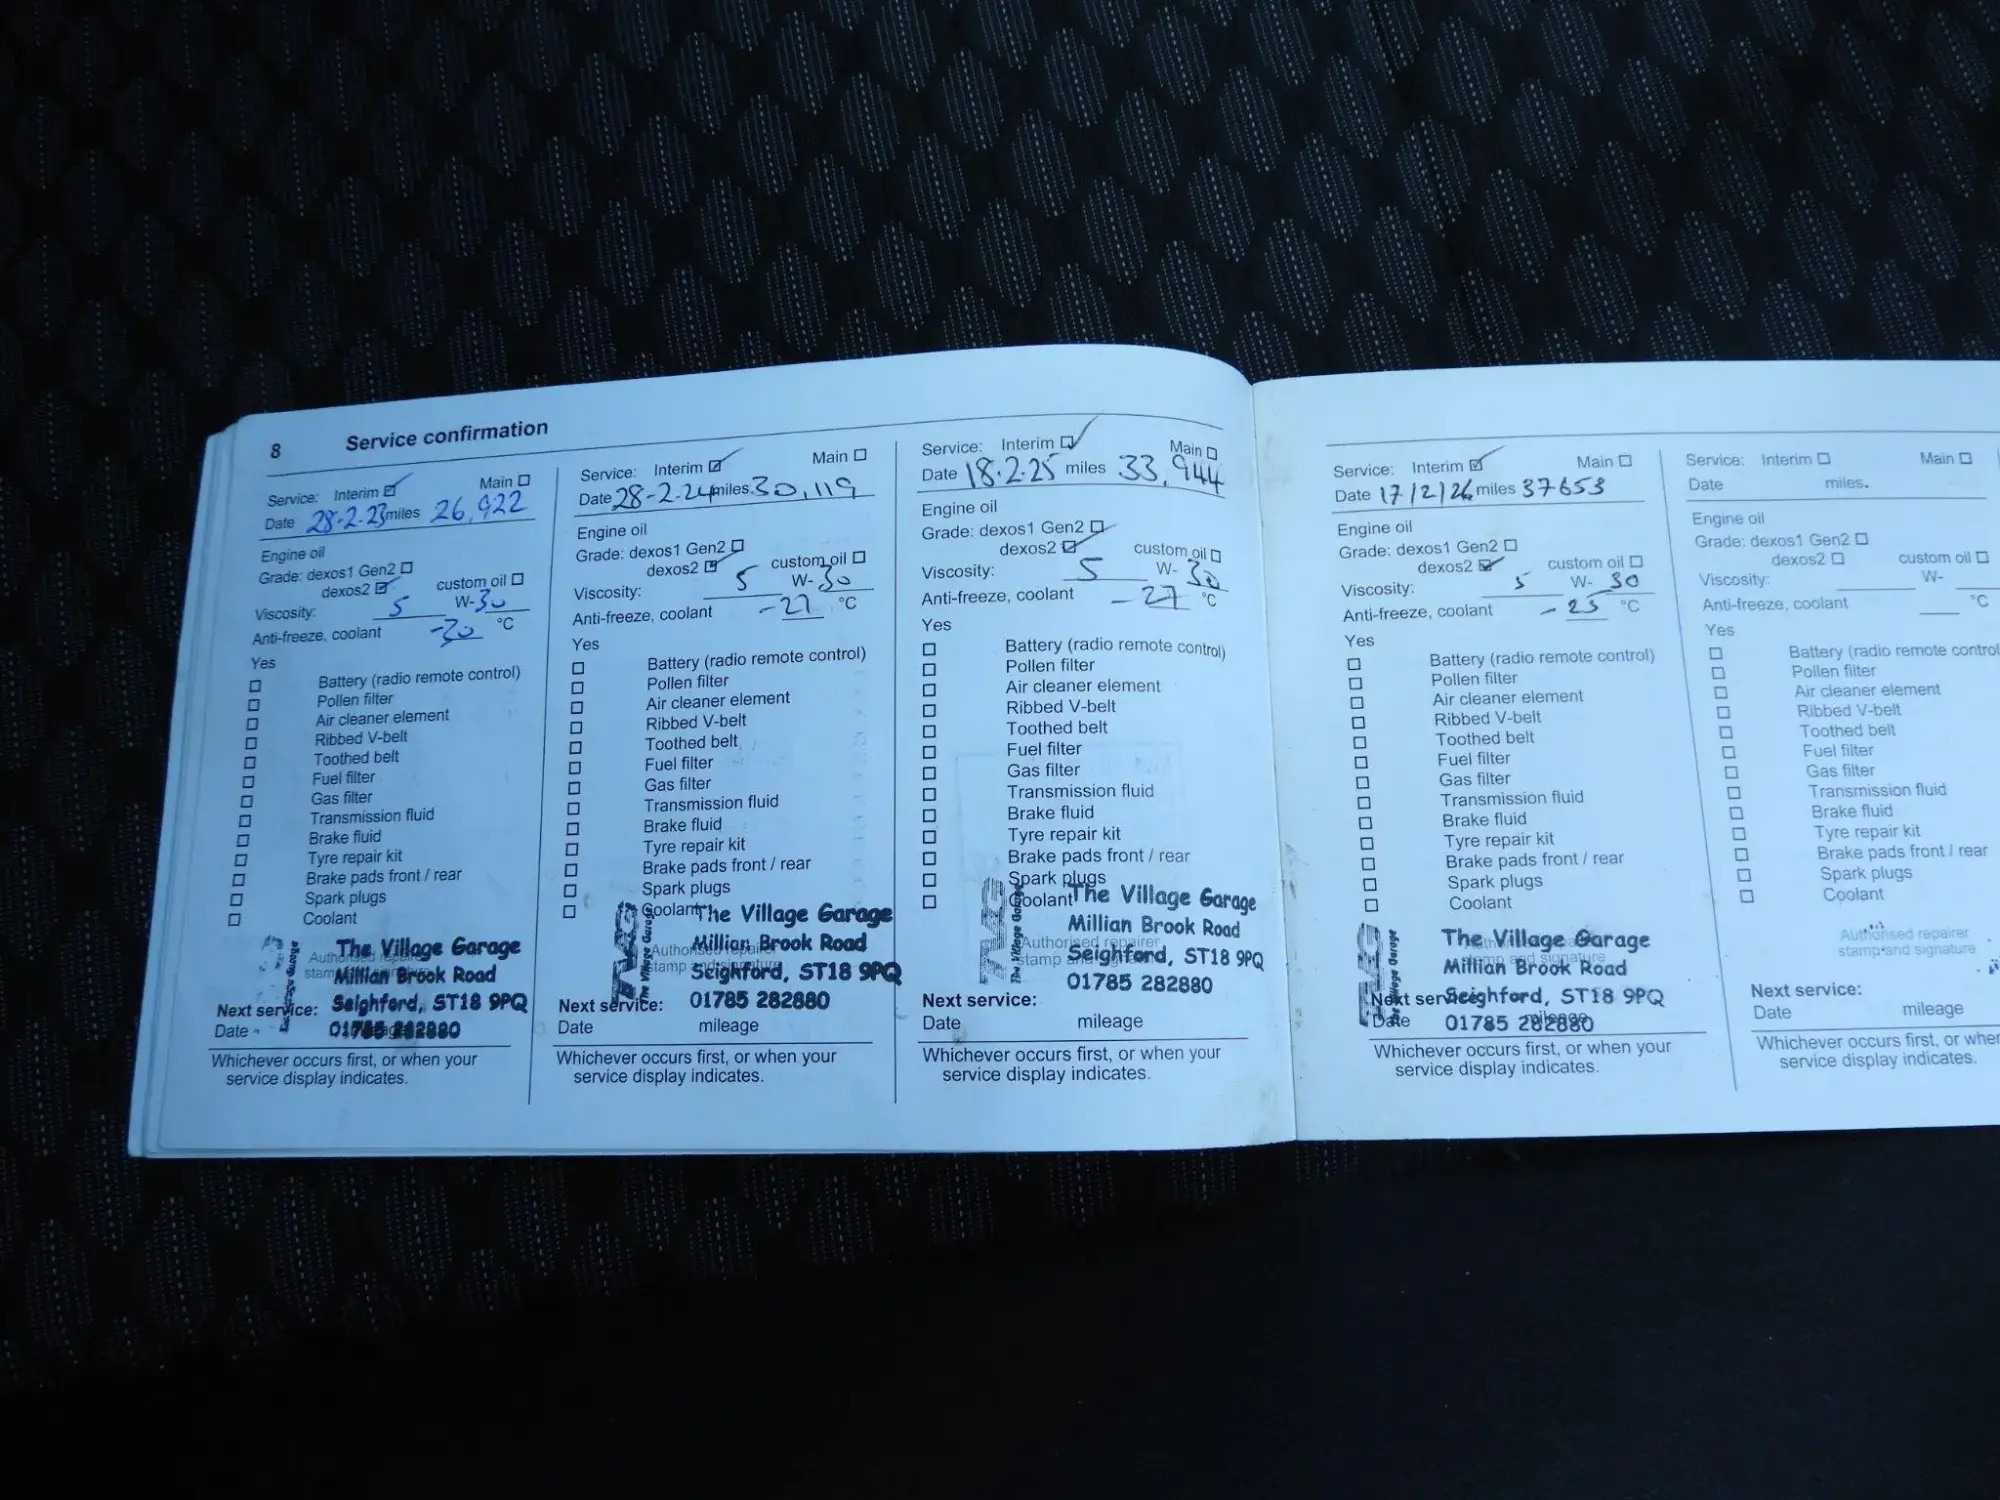 8 Service confirmation
Service: Interim Main
Date 28-2-23 miles 26,922
Engine oil
Grade: dexos1 Gen2
dexos2 custom oil
Viscosity: 5 W-30
Anti-freeze, coolant -30 °C
Yes
Battery (radio remote control)
Pollen filter
Air cleaner element
Ribbed V-belt
Toothed belt
Fuel filter
Gas filter
Transmission fluid
Brake fluid
Tyre repair kit
Brake pads front / rear
Spark plugs
Coolant
The Village Garage
Millian Brook Road
Seighford, ST18 9PQ
01785 282880
Next service:
Date
Whichever occurs first, or when your
service display indicates.
Service: Interim Main
Date 28-2-24 miles 30,119
Engine oil
Grade: dexos1 Gen2
dexos2 custom oil
Viscosity: 5 W-30
Anti-freeze, coolant -27 °C
Yes
Battery (radio remote control)
Pollen filter
Air cleaner element
Ribbed V-belt
Toothed belt
Fuel filter
Gas filter
Transmission fluid
Brake fluid
Tyre repair kit
Brake pads front / rear
Spark plugs
Coolant
The Village Garage
The Village Garage
Millian Brook Road
Authorised repairer
stamp and signature
Seighford, ST18 9PQ
01785 282880
Next service:
Date mileage
Whichever occurs first, or when your
service display indicates.
Service: Interim Main
Date 18.2.25 miles 33,944
Engine oil
Grade: dexos1 Gen2
dexos2 custom oil
Viscosity: 5 W-30
Anti-freeze, coolant -27 °C
Yes
Battery (radio remote control)
Pollen filter
Air cleaner element
Ribbed V-belt
Toothed belt
Fuel filter
Gas filter
Transmission fluid
Brake fluid
Tyre repair kit
Brake pads front / rear
Spark plugs
Coolant
The Village Garage
The Village Garage
Millian Brook Road
Authorised repairer
stamp and signature
Seighford, ST18 9PQ
01785 282880
Next service:
Date mileage
Whichever occurs first, or when your
service display indicates.
Service: Interim Main
Date 17/2/26 miles 37653
Engine oil
Grade: dexos1 Gen2
dexos2 custom oil
Viscosity: 5 W-30
Anti-freeze, coolant -25 °C
Yes
Battery (radio remote control)
Pollen filter
Air cleaner element
Ribbed V-belt
Toothed belt
Fuel filter
Gas filter
Transmission fluid
Brake fluid
Tyre repair kit
Brake pads front / rear
Spark plugs
Coolant
The Village Garage
The Village Garage
stamp and signature
Millian Brook Road
Seighford, ST18 9PQ
01785 282880
Next service:
Date mileage
Whichever occurs first, or when your
service display indicates.
Service: Interim Main
Date miles.
Engine oil
Grade: dexos1 Gen2
dexos2 custom oil
Viscosity: W-
Anti-freeze, coolant °C
Yes
Battery (radio remote control
Pollen filter
Air cleaner element
Ribbed V-belt
Toothed belt
Fuel filter
Gas filter
Transmission fluid
Brake fluid
Tyre repair kit
Brake pads front / rear
Spark plugs
Coolant
Authorised repairer
stamp and signature
Next service:
Date mileage
Whichever occurs first, or when
service display indicates.